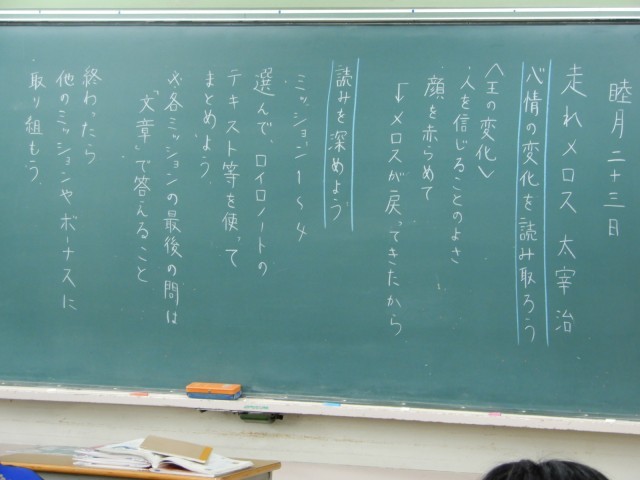 睦月二十三日
走れメロス 太宰治
心情の変化を読み取ろう
〈王の変化〉
人を信じることのよさ
顔を赤らめて
↓メロスが戻ってきたから
読みを深めよう
ミッション1〜4
選んで、ロイロノートの
テキスト等を使って
まとめよう。
※各ミッションの最後の問は
「文章」で答えること
終わったら
他のミッションやボーナスに
取り組もう。